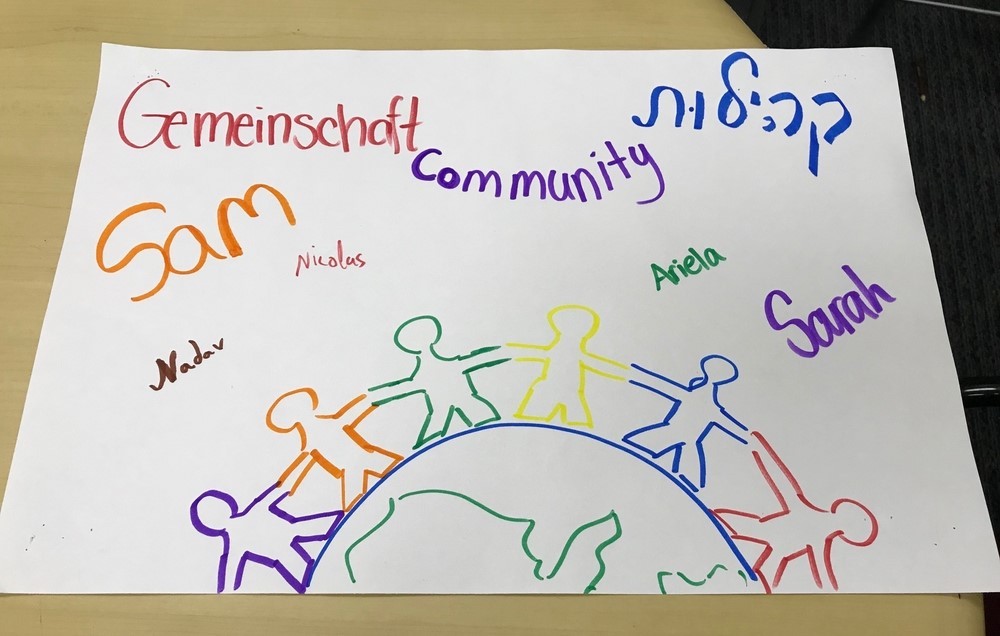 Gemeinschaft
Community
קהילות
Sam
Nicolas
Ariela
Sarah
Nadav